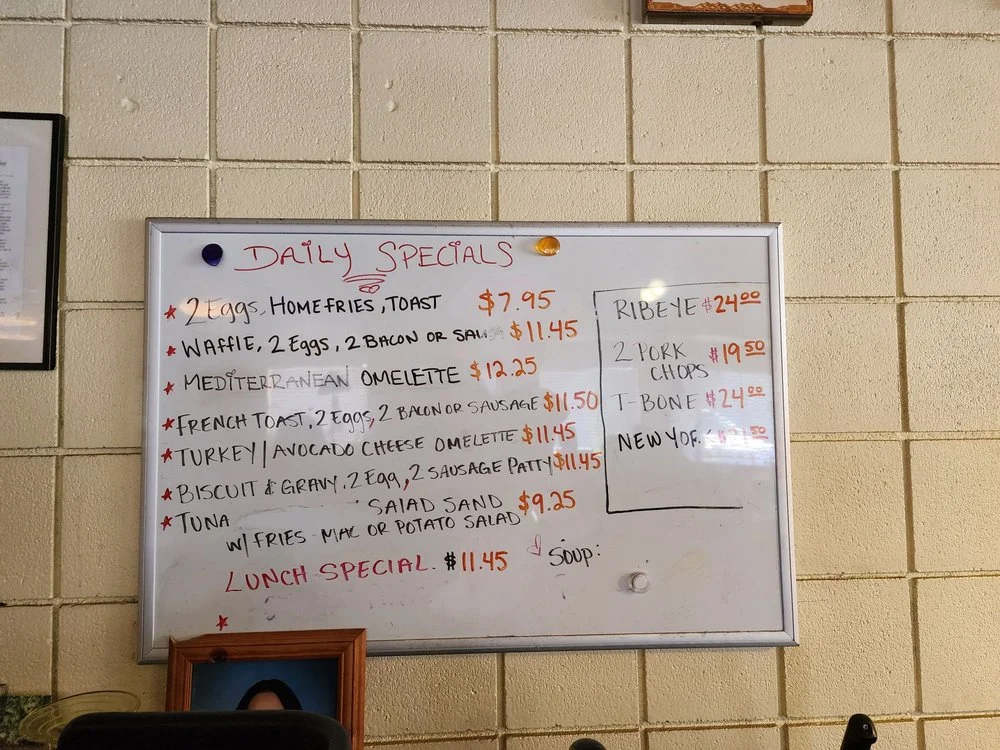 DAILY SPECIALS
* 2 Eggs, HOMEFRIES, TOAST $7.95
* WAFFLE, 2 Eggs, 2 BACON OR $11.45
* MEDITERRANEAN OMELETTE $12.25
* FRENCH TOAST, 2 Eggs, 2 BACON OR SAUSAGE $11.50
* TURKEY/AVOCADO CHEESE OMELETTE $11.45
* BISCUIT & GRAVY, 2 Egg, 2 SAUSAGE PATTY $11.45
* TUNA SALAD SAND $9.25
W/ FRIES - MAC OR POTATO SALAD
LUNCH SPECIAL. $11.45
*
RIBEYE $24.00
2 PORK CHOPS $19.50
T-BONE $24.00
NEW
Soup: